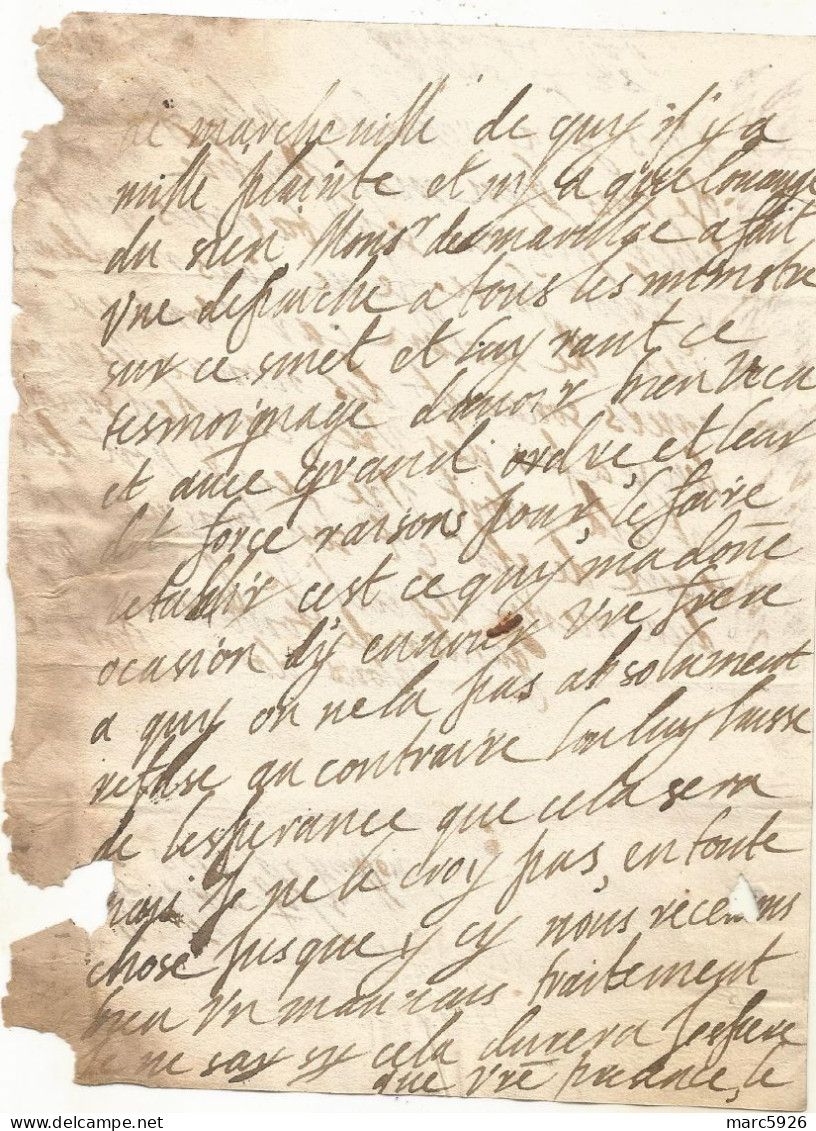 de marchenille de quy il y a
mille plainte et ny a que louange
du sien Monsr de marillac a fait
vne depesche a tous les ministre
sur ce suiet et luy rant ce
tesmoignage dauoir bien vecu
et auec grand ordre, et leur
dit force raisons pour le faire
retablir cest ce quy ma doñe
ocasion dy enuoyer vre frere
a quy on ne la pas absolument
refuse au contraire lon luy laisse
de lesperance que cela sera
mais Je ne le croy pas, en toute
chose jusque y cy nous receuons
bien vn mauuais traitement
Je ne say sy cela durera Jespere
que vre presance, le
marc5926